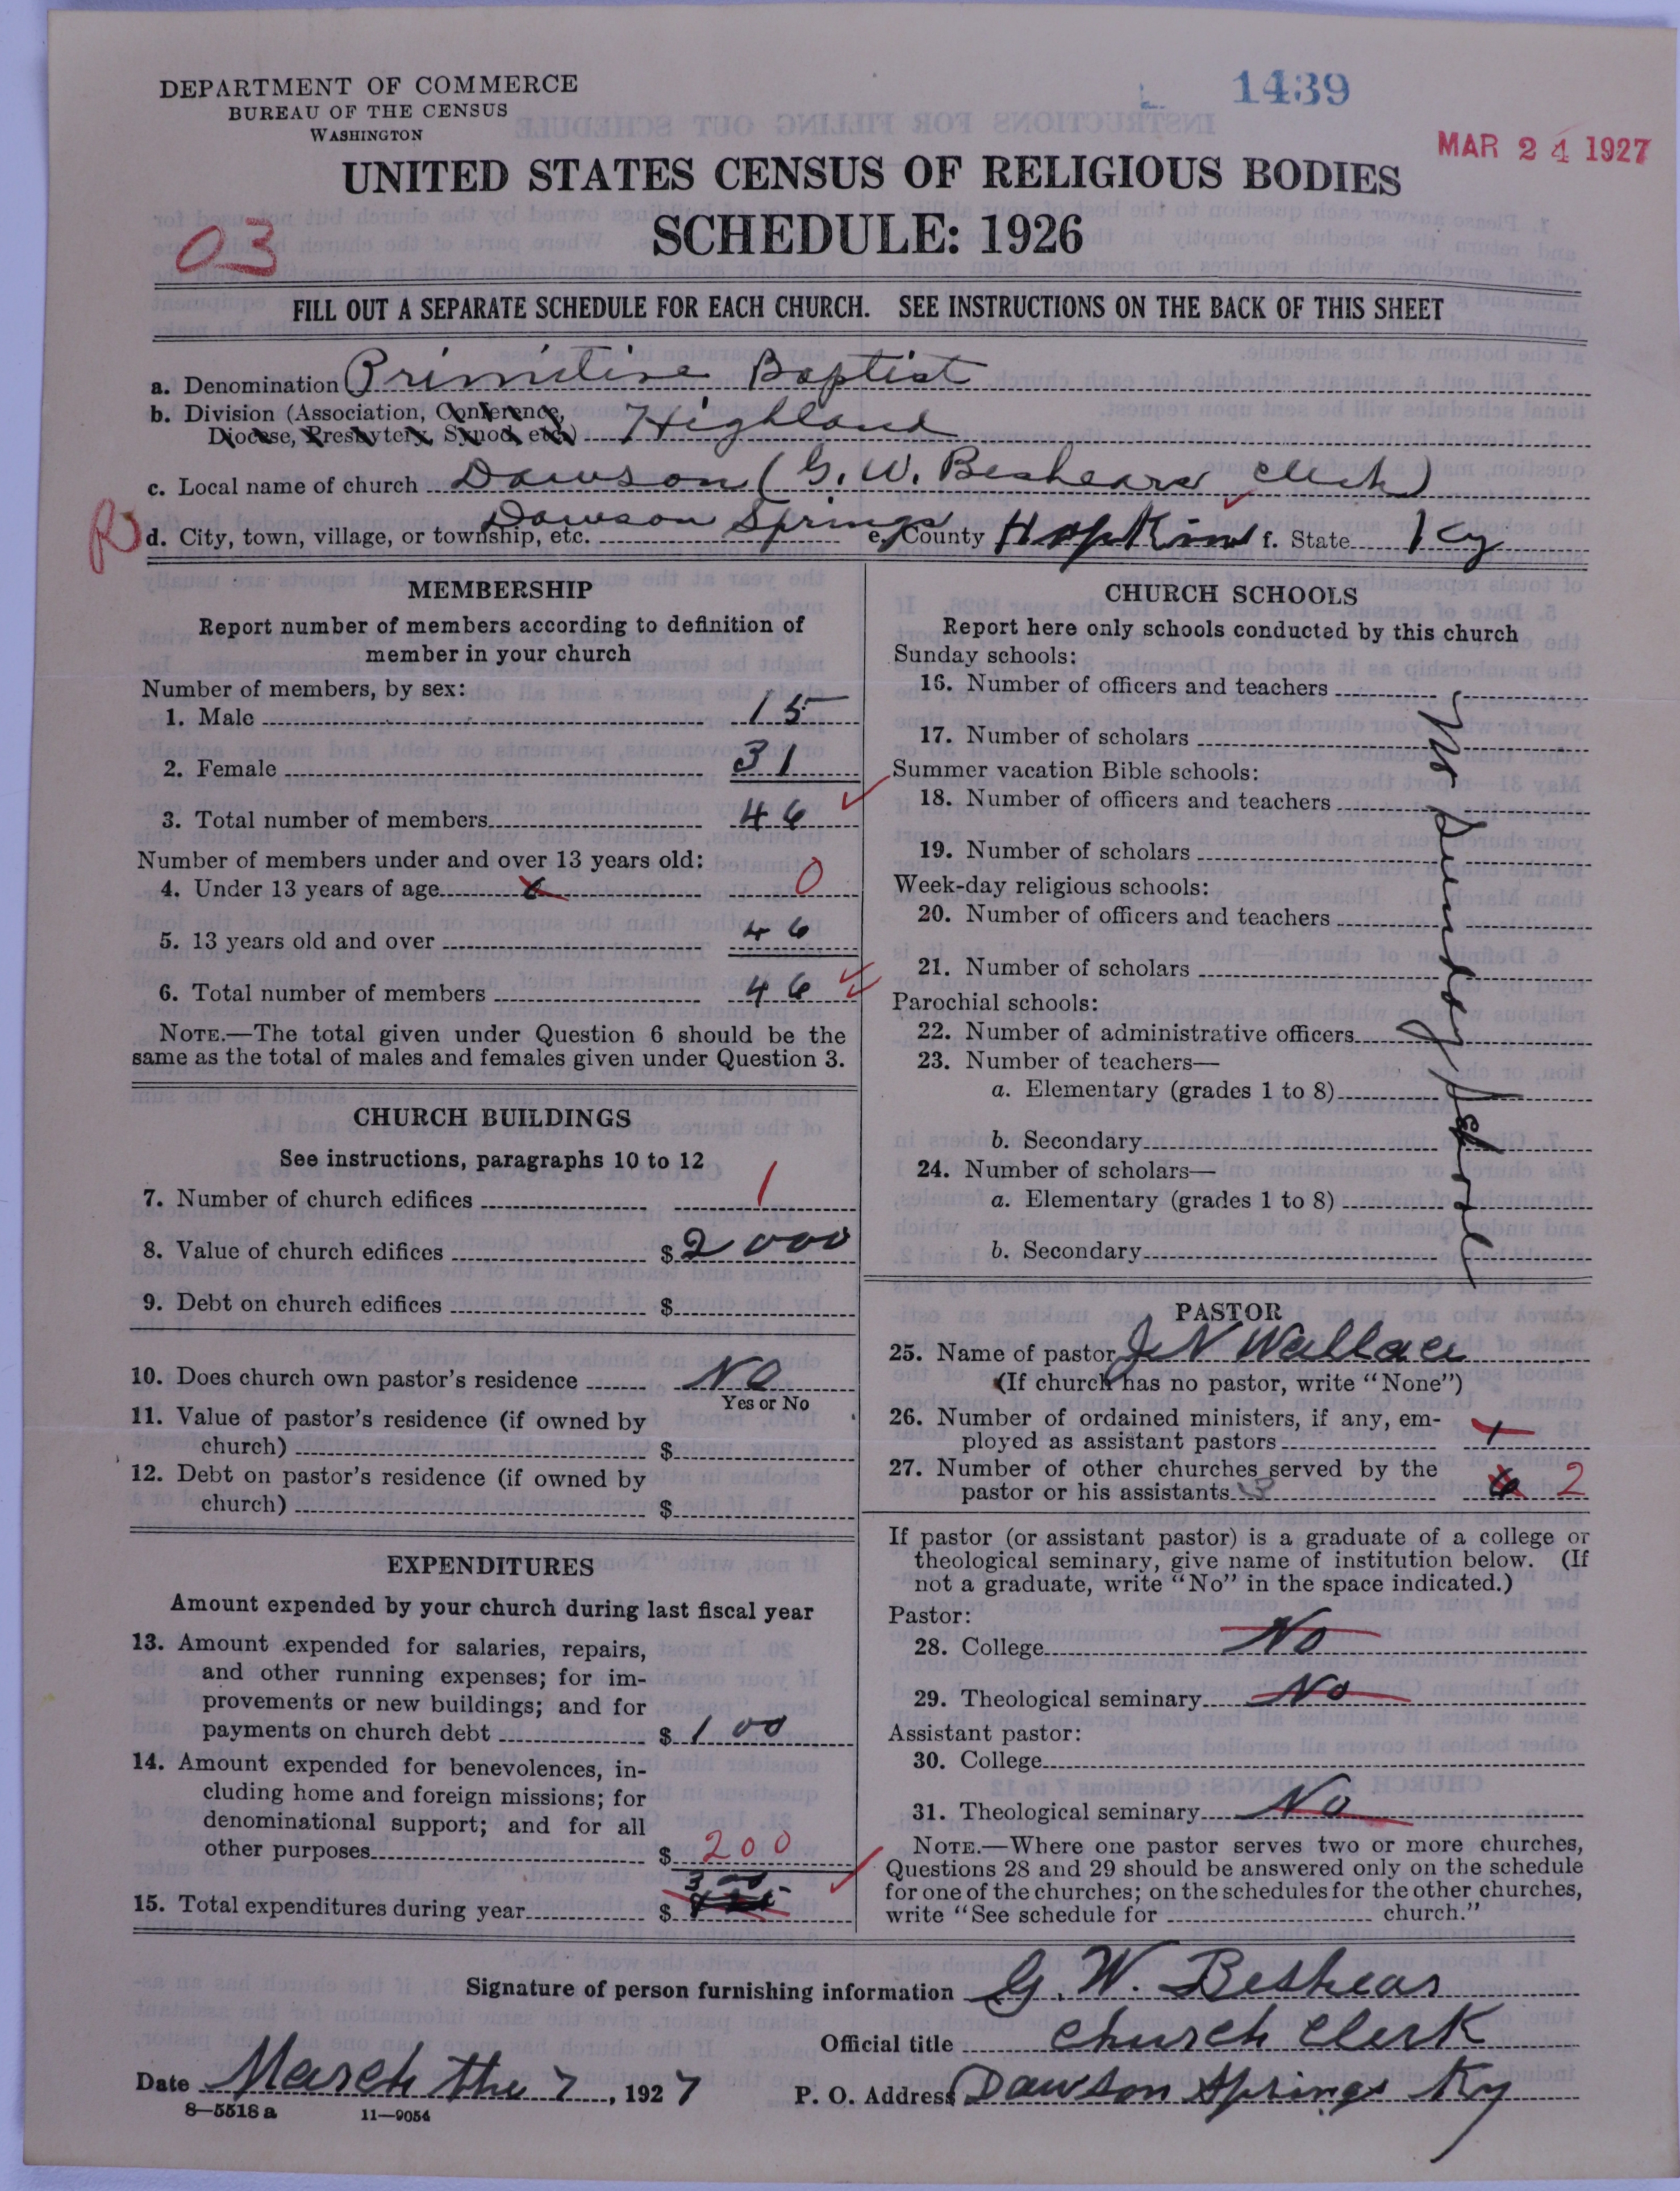 DEPARTMENT OF COMMERCE
BUREAU OF THE CENSUS
WASHINGTON
1439
MAR 24 1927
UNITED STATES CENSUS OF RELIGIOUS BODIES
SCHEDULE: 1926
03
FILL OUT A SEPARATE SCHEDULE FOR EACH CHURCH. SEE INSTRUCTIONS ON THE BACK OF THIS SHEET
a. Denomination Primitive Baptist
b. Division (Association, Conference,
Diocese, Presbytery, Synod, etc.) Highland
c. Local name of church Dawson (G. W. Beshears Clerk)
R d. City, town, village, or township, etc. Dawson Springs e. County Hopkins f. State Ky
MEMBERSHIP
Report number of members according to definition of
member in your church
Number of members, by sex:
1. Male 15
2. Female 31
3. Total number of members 46
Number of members under and over 13 years old:
4. Under 13 years of age 0
5. 13 years old and over 46
6. Total number of members 46
NOTE.—The total given under Question 6 should be the
same as the total of males and females given under Question 3.
CHURCH BUILDINGS
See instructions, paragraphs 10 to 12
7. Number of church edifices 1
8. Value of church edifices $ 2000
9. Debt on church edifices $
10. Does church own pastor's residence No
Yes or No
11. Value of pastor's residence (if owned by
church) $
12. Debt on pastor's residence (if owned by
church) $
EXPENDITURES
Amount expended by your church during last fiscal year
13. Amount expended for salaries, repairs,
and other running expenses; for im-
provements or new buildings; and for
payments on church debt $ 100
14. Amount expended for benevolences, in-
cluding home and foreign missions; for
denominational support; and for all
other purposes $ 200
15. Total expenditures during year $ 300
CHURCH SCHOOLS
Report here only schools conducted by this church
Sunday schools:
16. Number of officers and teachers
17. Number of scholars
Summer vacation Bible schools:
18. Number of officers and teachers
19. Number of scholars
Week-day religious schools:
20. Number of officers and teachers
21. Number of scholars
Parochial schools:
22. Number of administrative officers
23. Number of teachers—
a. Elementary (grades 1 to 8)
b. Secondary
24. Number of scholars—
a. Elementary (grades 1 to 8)
b. Secondary
No Sunday School
PASTOR
25. Name of pastor J N Wallace
(If church has no pastor, write "None")
26. Number of ordained ministers, if any, em-
ployed as assistant pastors 1
27. Number of other churches served by the
pastor or his assistants 3 6 2
If pastor (or assistant pastor) is a graduate of a college or
theological seminary, give name of institution below. (If
not a graduate, write "No" in the space indicated.)
Pastor:
28. College No
29. Theological seminary No
Assistant pastor:
30. College
31. Theological seminary No
NOTE.—Where one pastor serves two or more churches,
Questions 28 and 29 should be answered only on the schedule
for one of the churches; on the schedules for the other churches,
write "See schedule for church."
Signature of person furnishing information G. W. Beshears
Official title Church Clerk
Date March the 7, 1927 P. O. Address Dawson Springs Ky
8—5518 a 11—9054